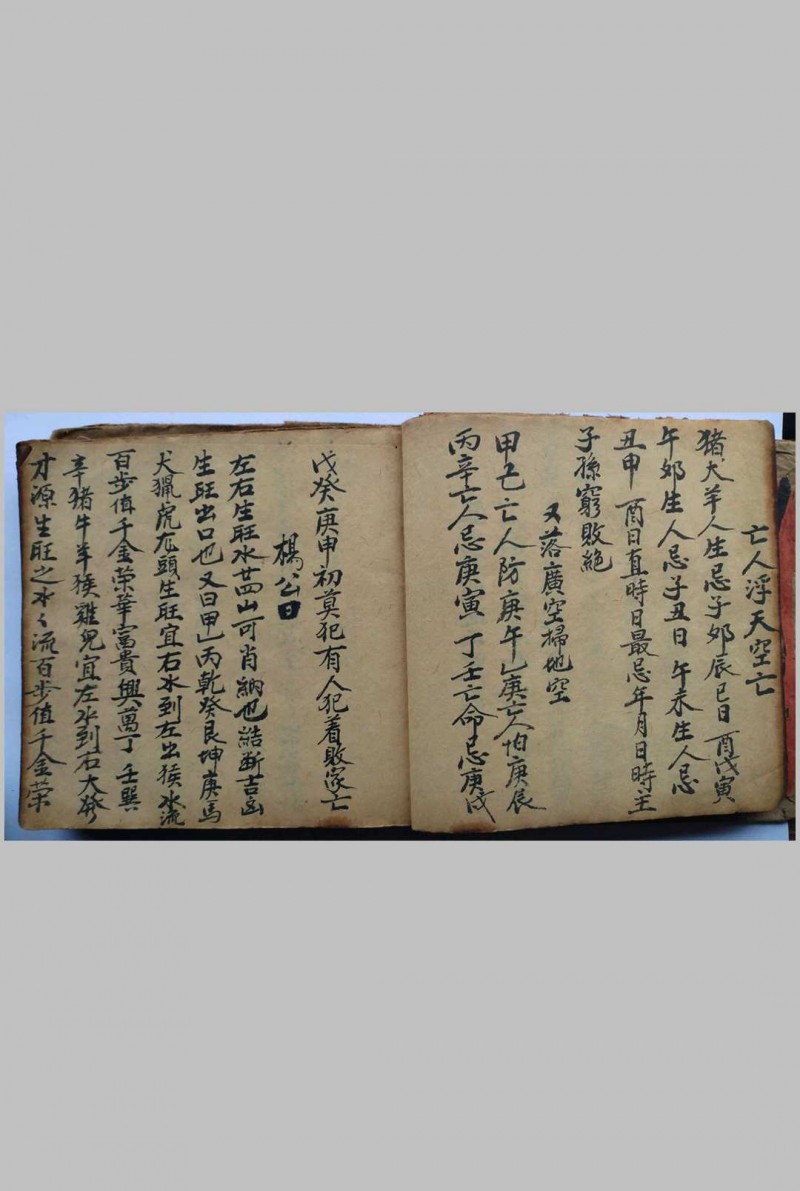 亡人浮天空亡
猪犬羊人生忌子郊辰巳日 酉戊寅
午郊生人忌子丑日 午未生人忌
丑申 酉日直時日最忌年月日時主
子孫窮敗絶
又落廣空掃地空
甲己亡人防庚午乙庚亡人怕庚辰
丙辛亡人忌庚寅 丁壬亡命忌庚戌
戊癸庚申初莫犯有人犯着敗家亡
楊公曰
左右生旺水廿四山可肖納也結断吉凶
生旺出口也又曰甲丙乾癸艮坤庚馬
犬獵虎頭生旺宜右水到左出猴水流
百步值千金荣華富貴興萬丁 壬巽
辛猪牛羊猴雞兒宜左水到右大發
才源生旺之水々流百步值千金荣